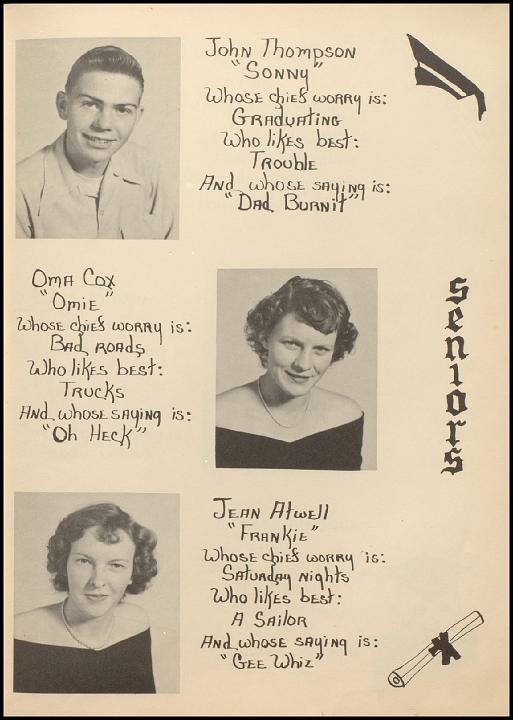 John Thompson
"Sonny"
Whose chief worry is:
Graduating
Who likes best:
Trouble
And whose saying is:
"Dad Burnit"
Oma Cox
"Omie"
Whose chief worry is:
Bad roads
Who likes best:
Trucks
And whose saying is:
"Oh Heck"
Seniors
Jean Atwell
"Frankie"
Whose chief worry is:
Saturday nights
Who likes best:
A Sailor
And whose saying is:
"Gee Whiz"